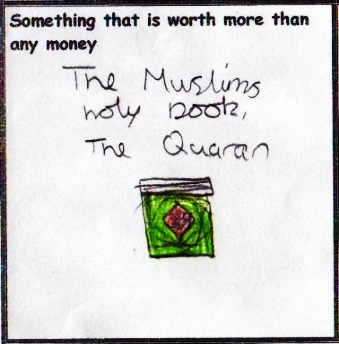 Something that is worth more than
any money
The Muslims
holy book,
The Quaran